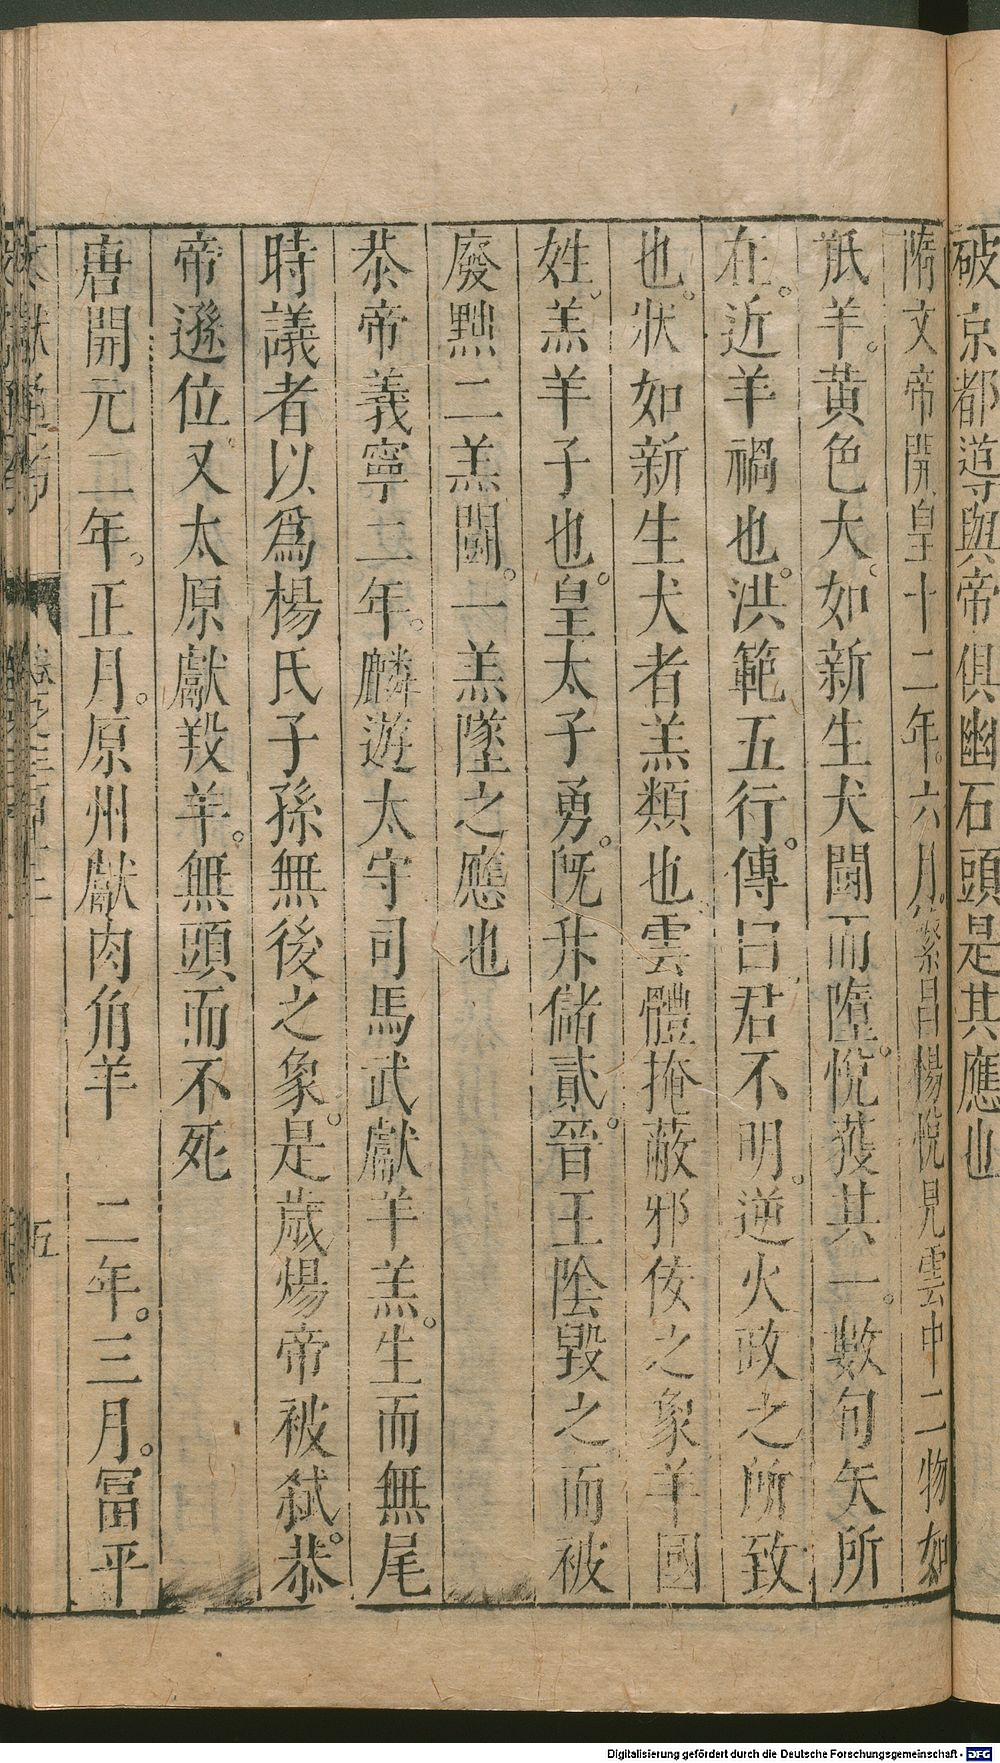 破京都導與帝俱幽石頭是其應也
隋文帝開皇十二年六月繁昌楊悅見雲中二物如
羝羊黃色大如新生犬鬭而墮悅獲其一數旬失所
在近羊禍也洪範五行傳曰君不明逆火政之所致
也狀如新生犬者羔類也雲體掩蔽邪佞之象羊國
姓羔羊子也皇太子勇既升儲貳晉王陰毀之而被
廢黜二羔鬭一羔墜之應也
恭帝義寧二年麟遊太守司馬武獻羊羔生而無尾
時議者以爲楊氏子孫無後之象是歲煬帝被弒恭
帝遜位又太原獻羖羊無頭而不死
唐開元二年正月原州獻肉角羊 二年三月冨平
文獻通考 卷之三百十二 五
Digitalisierung gefördert durch die Deutsche Forschungsgemeinschaft - DFG